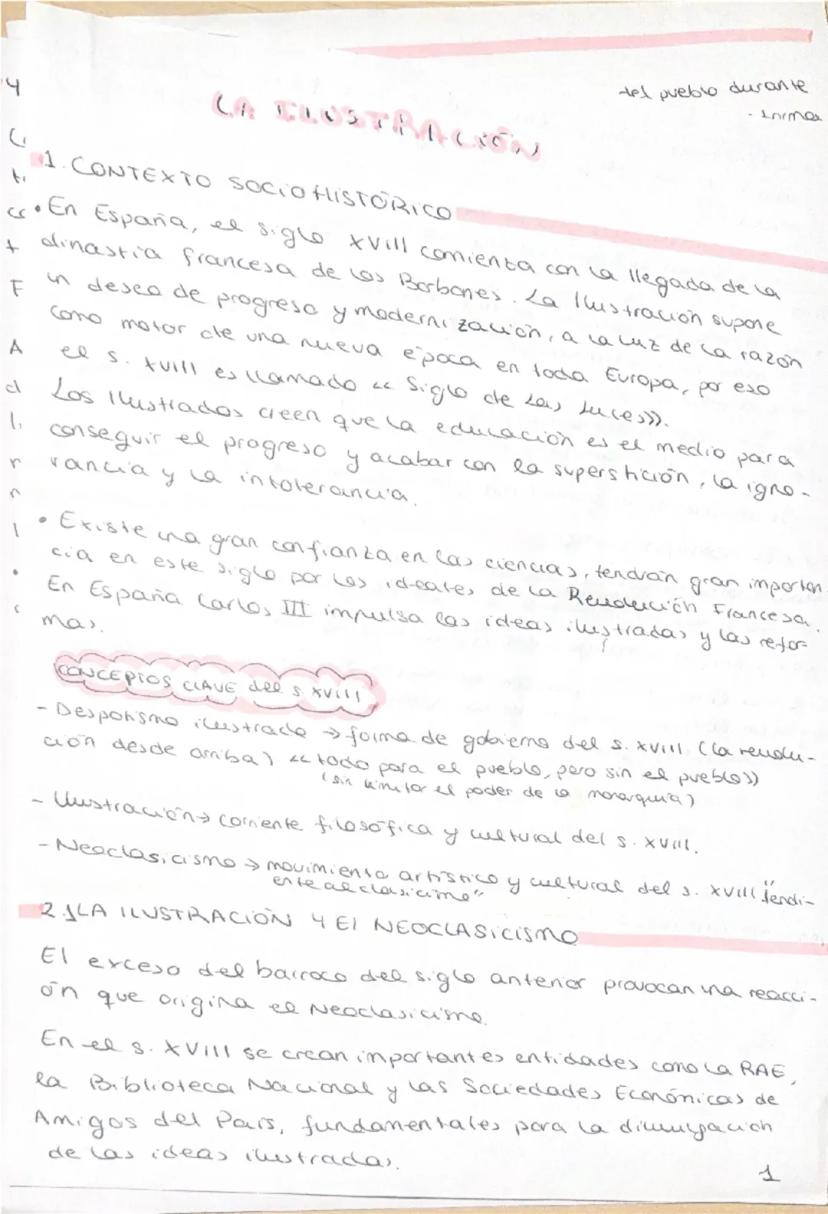 del pueblo durante
LA ILUSTRACIÓN
1. CONTEXTO SOCIOHISTÓRICO
• En España, el siglo XVIII comienza con la llegada de la
dinastía francesa de los Borbones. La Ilustración supone
un deseo de progreso y modernización, a la luz de la razón
como motor de una nueva época en toda Europa, por eso
el s. XVIII es llamado << Siglo de las Luces>>.
Los Ilustrados creen que la educación es el medio para
conseguir el progreso y acabar con la superstición, la igno-
rancia y la intolerancia.
• Existe una gran confianza en las ciencias, tendrán gran importan
cia en este siglo por los ideales de la Revolución Francesa.
En España Carlos III impulsa las ideas ilustradas y las refor-
mas.
CONCEPTOS CLAVE del s. XVIII
- Despotismo ilustrado → forma de gobierno del s. XVIII (la revolu-
ción desde arriba) << todo para el pueblo, pero sin el pueblo>>
(sin limitar el poder de la monarquía)
- Ilustración → corriente filosófica y cultural del s. XVIII.
- Neoclasicismo → movimiento artístico y cultural del s. XVIII "tendi-
ente al clasicismo"
2. LA ILUSTRACIÓN Y El NEOCLASICISMO
El exceso del barroco del siglo anterior provocan una reacci-
ón que origina el Neoclasicismo.
En el s. XVIII se crean importantes entidades como la RAE,
la Biblioteca Nacional y las Sociedades Económicas de
Amigos del País, fundamentales para la divulgación
de las ideas ilustradas.
1